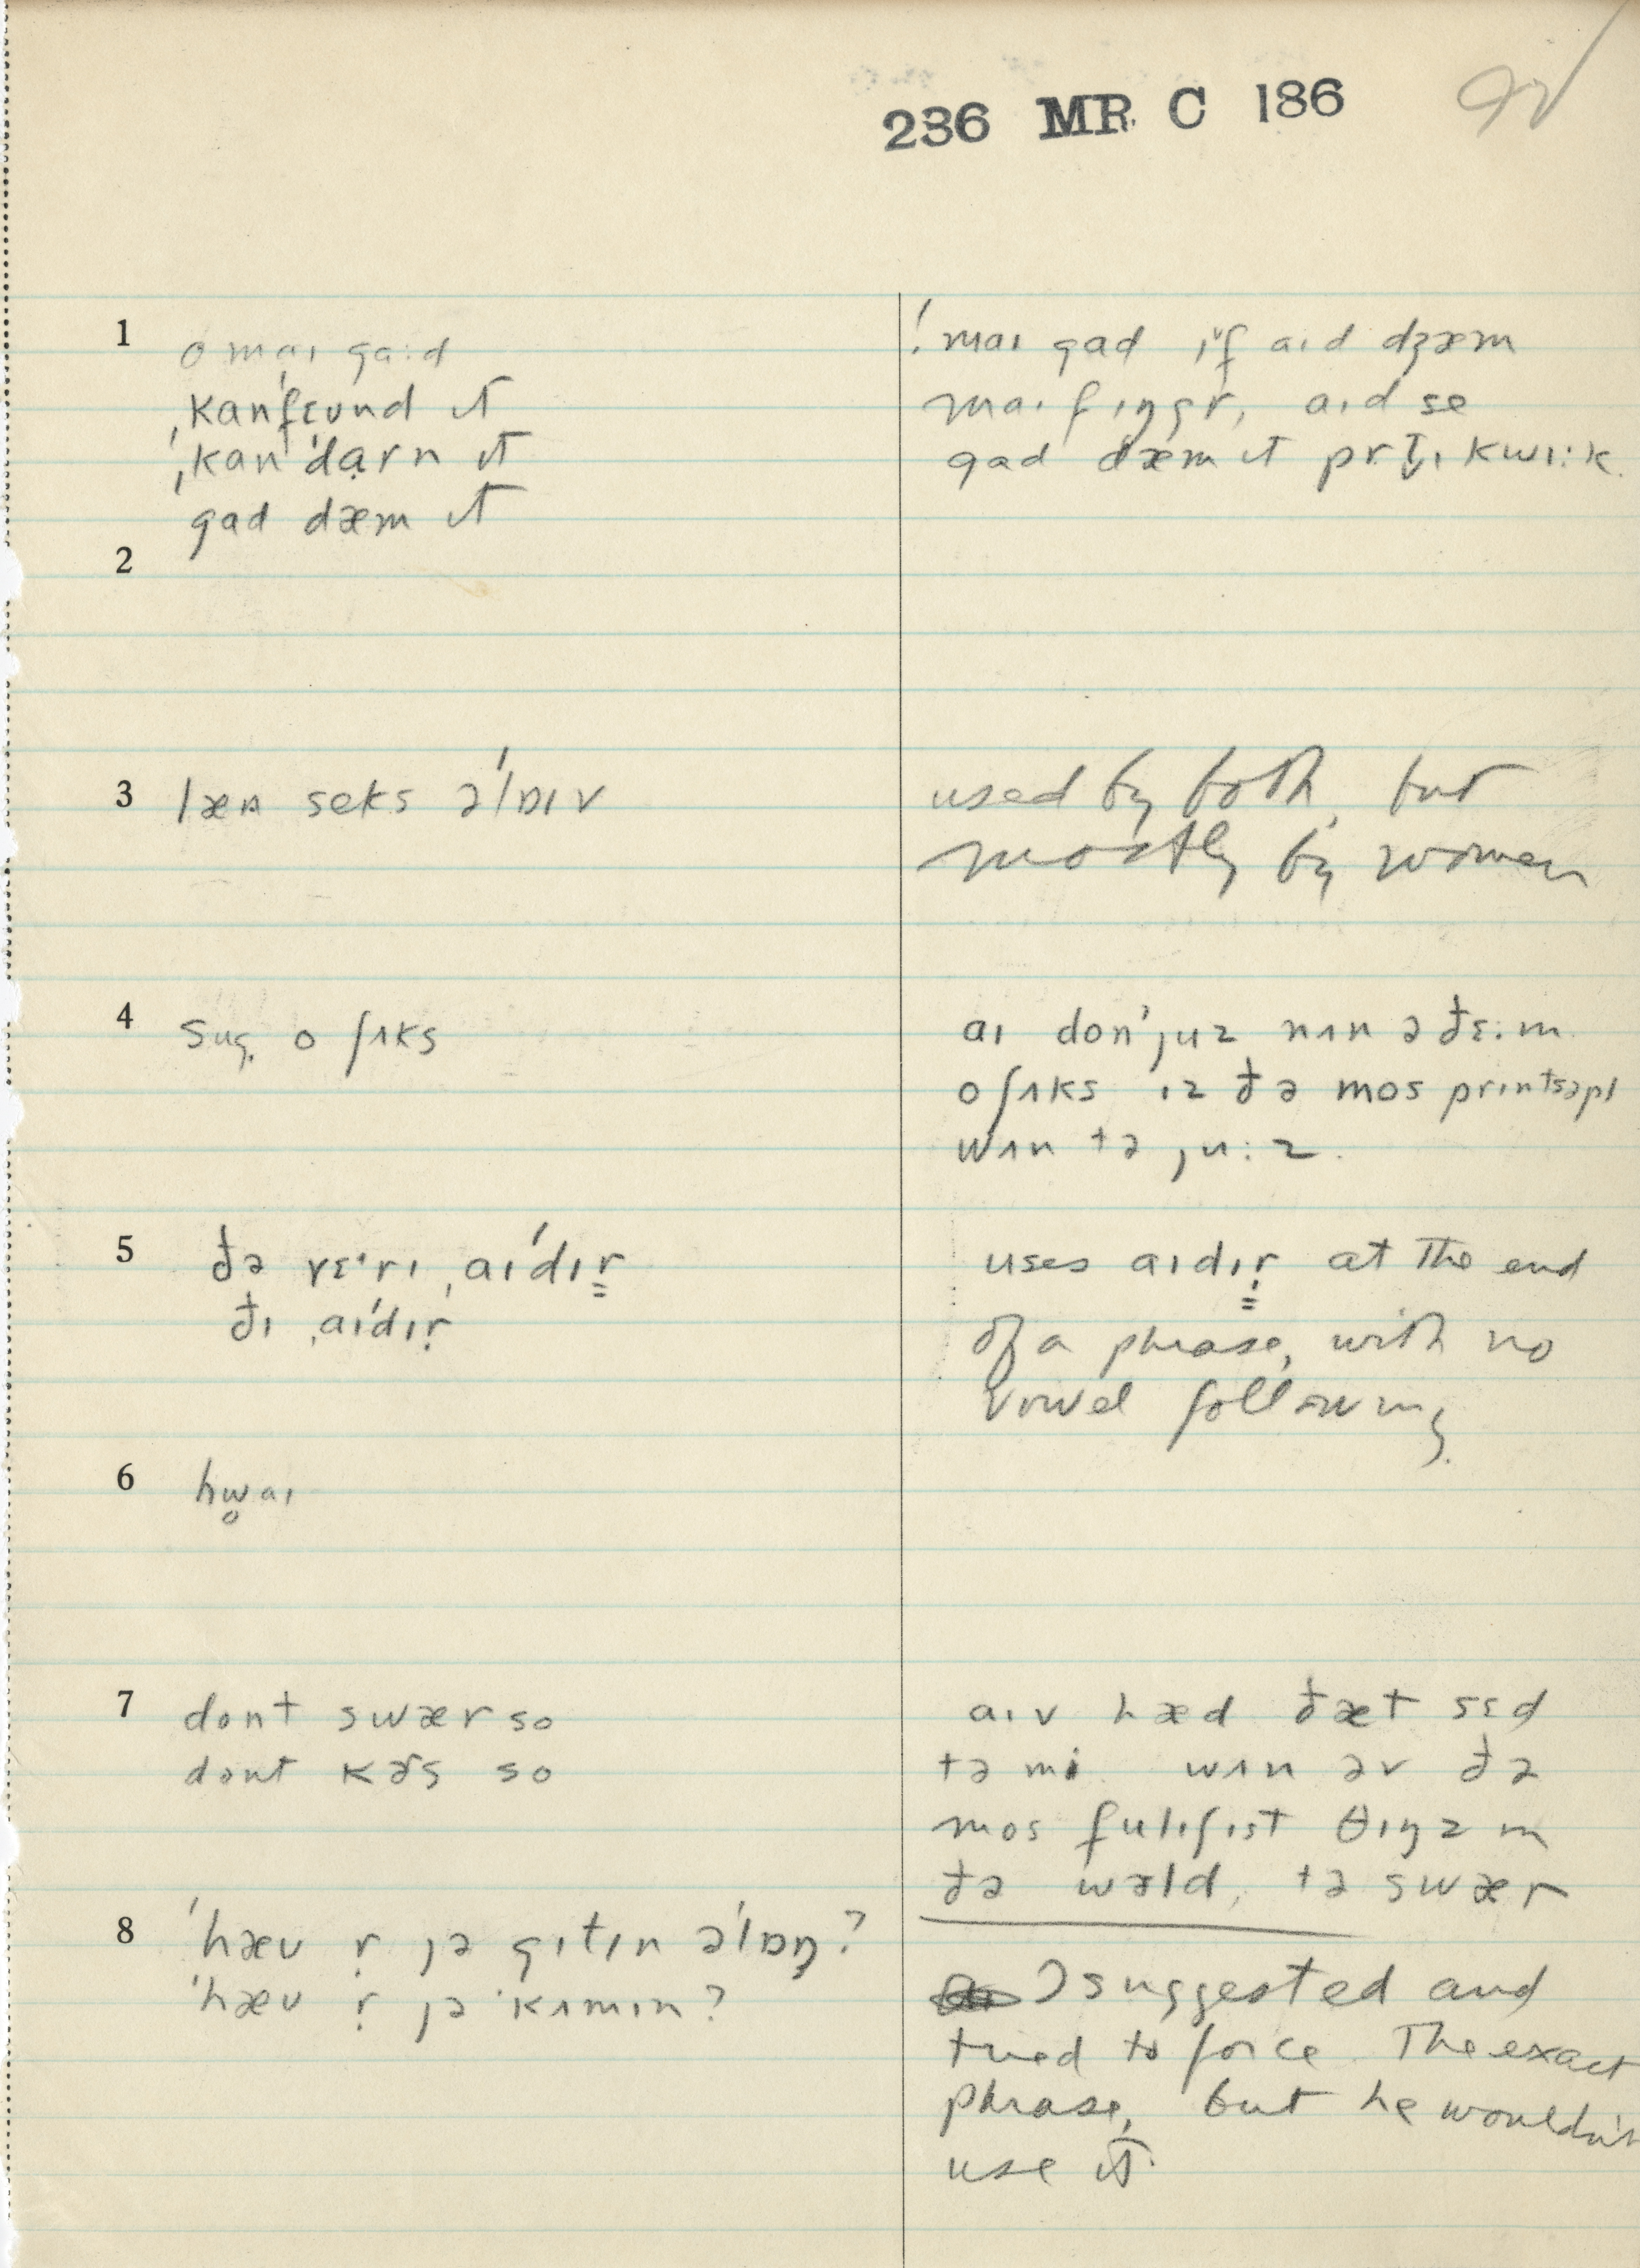 236 MR. C 186
1 o maɪ ga:d
ˌkanˈfɛund ɪt
ˌkanˈdarn ɪt
gad dæm ɪt
2
3 læn seks əˈlɒɪv
4 sug. o ʃʌks
5 ðə vɛˑrɪ ˌaɪˈdɪr̤
ðɪ ˌaɪˈdɪṛ
6 hw̥aɪ
7 dont swær so
dont kɚs so
8 ˈhæv ṛ jə gɪtɪn əˈlɒŋ?
ˈhæv ṛ jə ˈkʌmɪn?
! maɪ gad ɪf aɪd dʒæm
maɪ fɪŋgṛ, aɪd se
gad dæm ɪt prt̬ɪ kwɪ:k.
used by both, but
mostly by women
aɪ donˈjuz nʌn ə ðɛ:m.
o ʃʌks ɪz ðə mos prɪntsəpl
wʌn tə ju:z.
uses aɪdɪṛ at the end
of a phrase, with no
vowel following.
aɪv hæd ðæt sɛd
tə mi wʌn əv ðə
mos fulɪʃɪst θɪŋz ɪn
ðə wɚld, tə swær
I suggested and
tried to force the exact
phrase, but he wouldn't
use it.